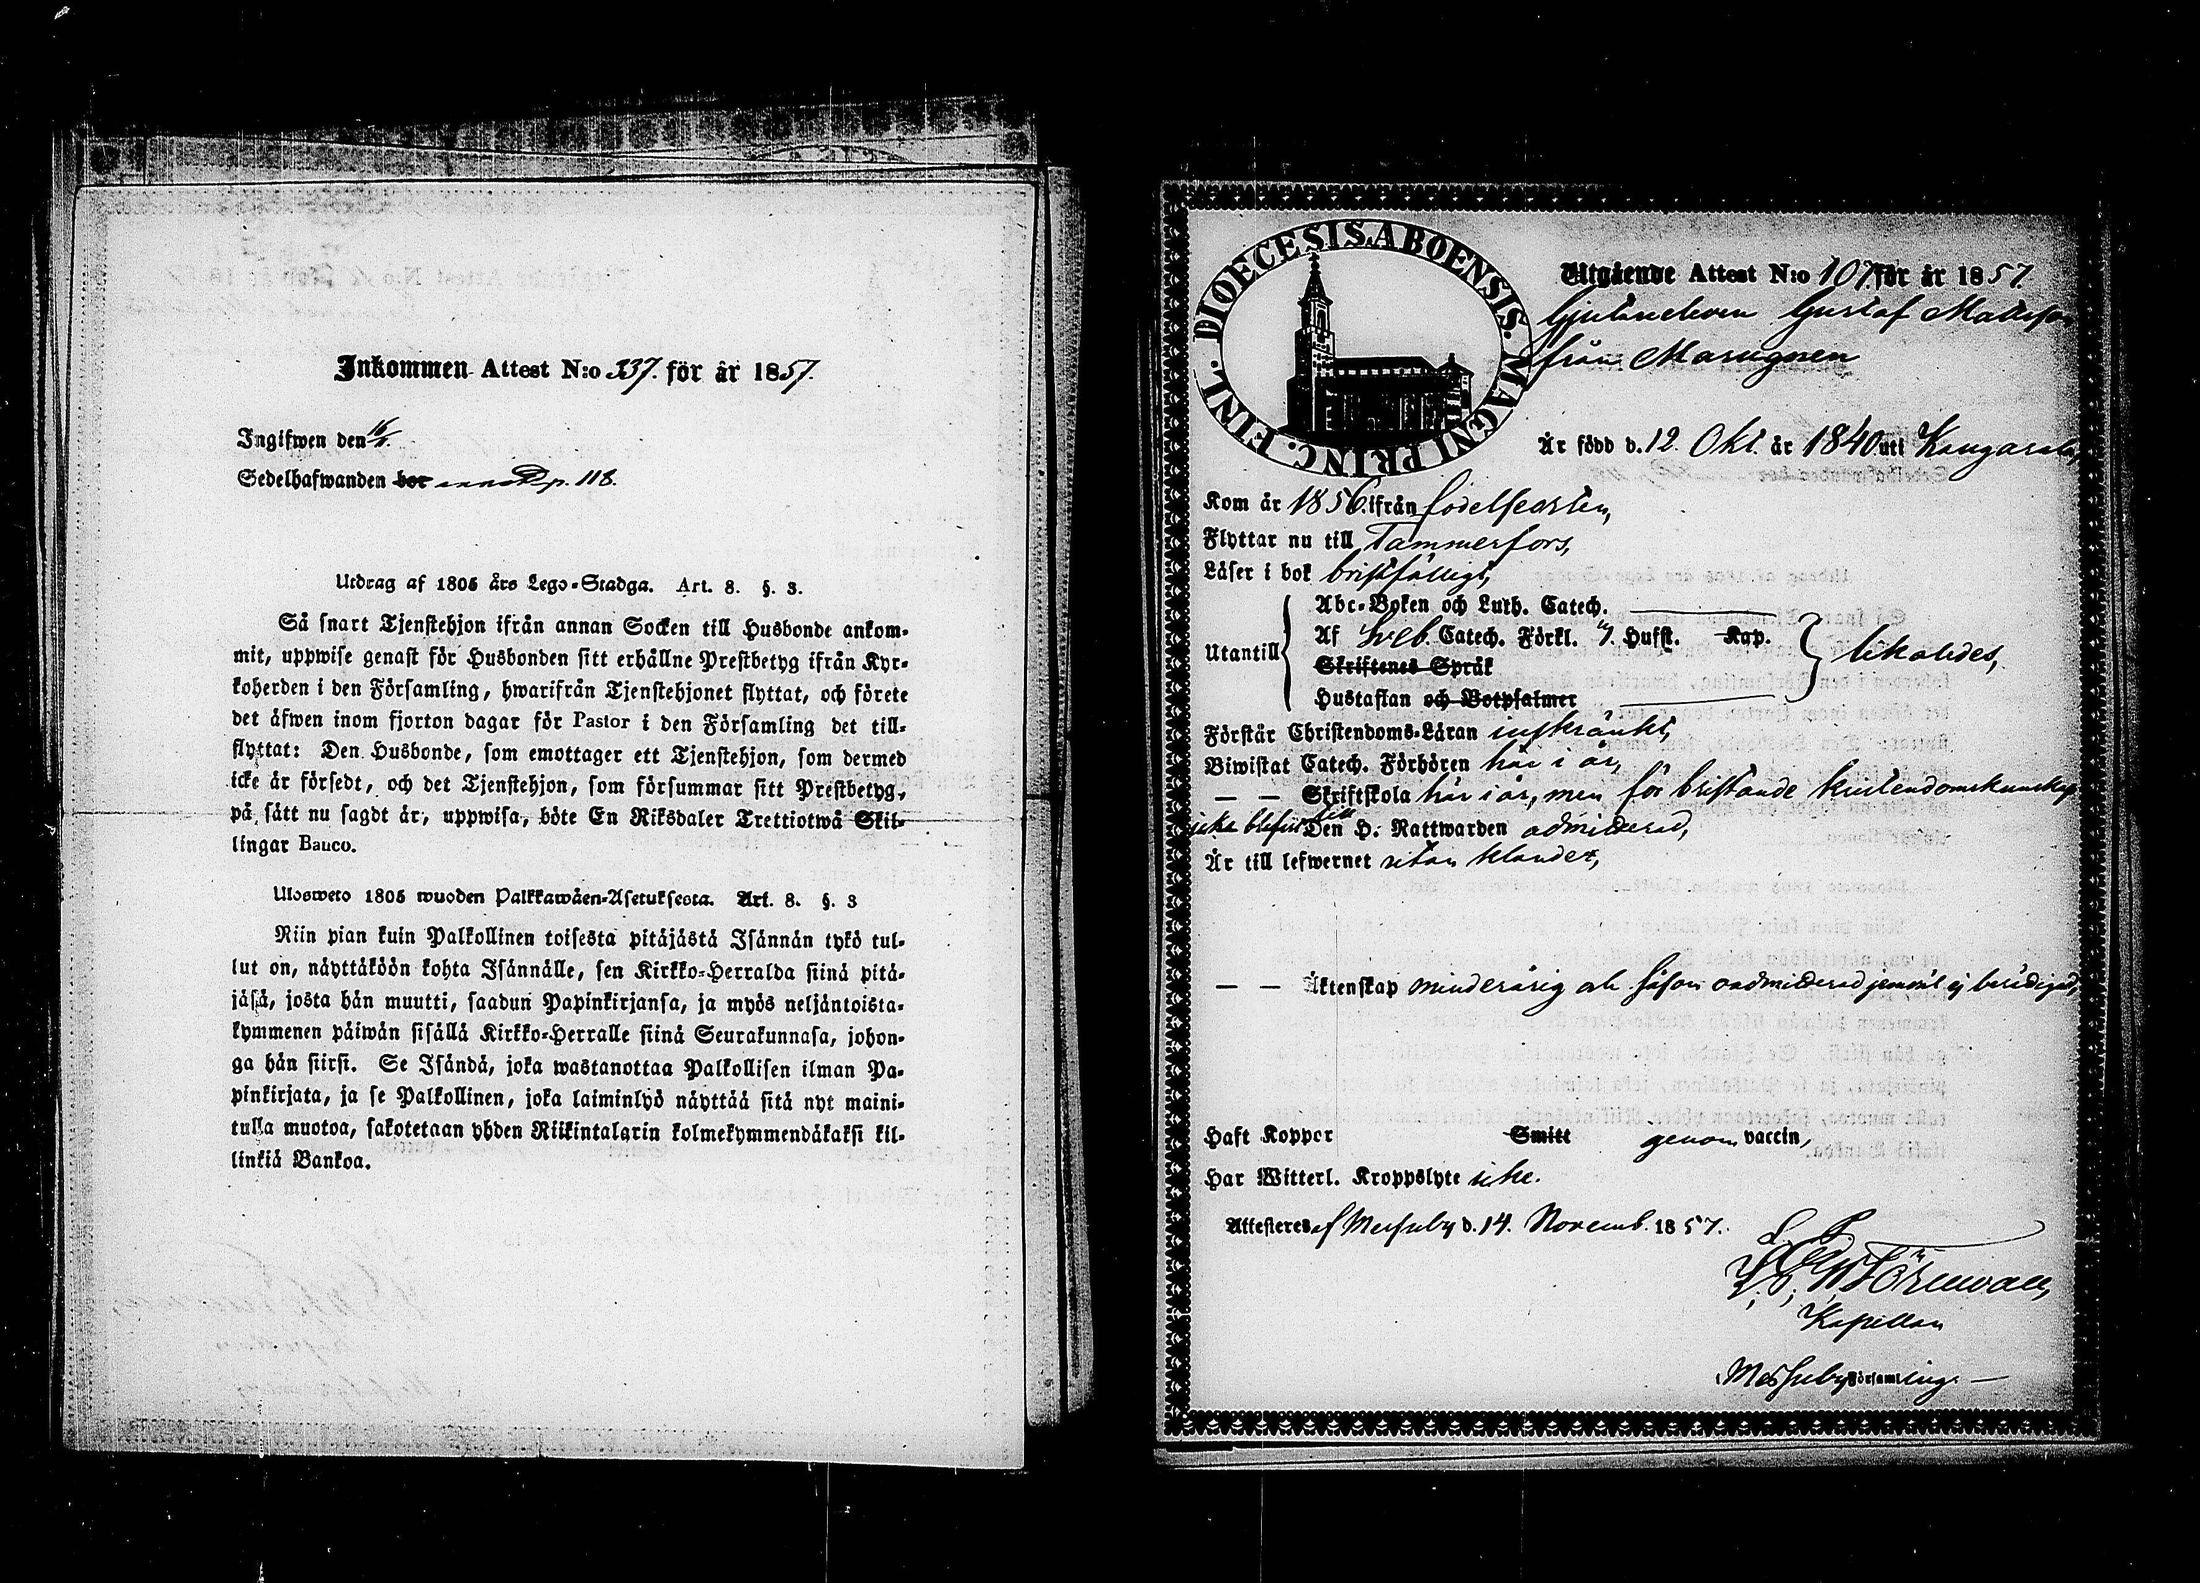 Inkommen Attest N:o 337. för år 1857.
Ingifwen den 16/
Sedelhafwanden bor p. 118.
Utdrag af 1805 års Lego-Stadga. Art. 8. §. 3.
Så snart Tjenstehjon ifrån annan Socken till Husbonde ankom-
mit, uppwise genast för Husbonden sitt erhållne Prestbetyg ifrån Kyr-
koherden i den Församling, hwarifrån Tjenstehjonet flyttat, och förete
det äfwen inom fjorton dagar för Pastor i den Församling det till-
flyttat: Den Husbonde, som emottager ett Tjenstehjon, som dermed
icke är försedt, och det Tjenstehjon, som försummar sitt Prestbetyg,
på sätt nu sagdt är, uppwisa, böte En Riksdaler Trettiotwå Skil-
lingar Banco.
Ulosweto 1805 wuoden Palkkawäen-Asetuksesta. Art. 8. §. 3
Niin pian kuin Palkollinen toisesta pitäjästä Isännän tykö tul-
lut on, näyttäköön kohta Isännälle, sen Kirkko-Herralda siinä pitä-
jäsä, josta hän muutti, saadun Papinkirjansa, ja myös neljäntoista-
kymmenen päiwän sisällä Kirkko-Herralle siinä Seurakunnasa, johon-
ga hän siirsi. Se Isändä, joka wastanottaa Palkollisen ilman Pa-
pinkirjata, ja se Palkollinen, joka laiminlyö näyttää sitä nyt maini-
tulla muotoa, sakotetaan yhden Riikintalarin kolmekymmendäkaksi kil-
linkiä Bankoa.
DIOECESIS ABOENSIS. MAGNI PRINC. FINL.
Utgående Attest N:o 107 för år 1857.
Gustaf Mattsson
från
Är född d. 12. Okt. år 1840 uti Kangasala,
Kom år 1856. ifrån födelseorten,
Flyttar nu till Tammerfors,
Läser i bok bristfälligt,
Abc-Boken och Luth. Catech.
Utantill Af Sveb. Catech. Förkl. Hufst. Kap. likaledes,
Skriftenes Språk
Hustaflan och Botpsalmer
Förstår Christendoms-Läran inskränkt,
Biwistat Catech. Förhören här i år,
— — Skriftskola här i år, men för bristande kristendomskunskap
icke blifvit till Den H. Nattwarden admitterad,
Är till lefwernet utan klander,
— — Äktenskap minderårig och såsom oadmitterad jemväl ej berättigad,
Haft Koppor Smitt genom vaccin,
Har Witterl. Kroppslyte icke.
Attesteres af Messuby d. 14. Novemb. 1857.
Kapellan
Messuby Församling. —